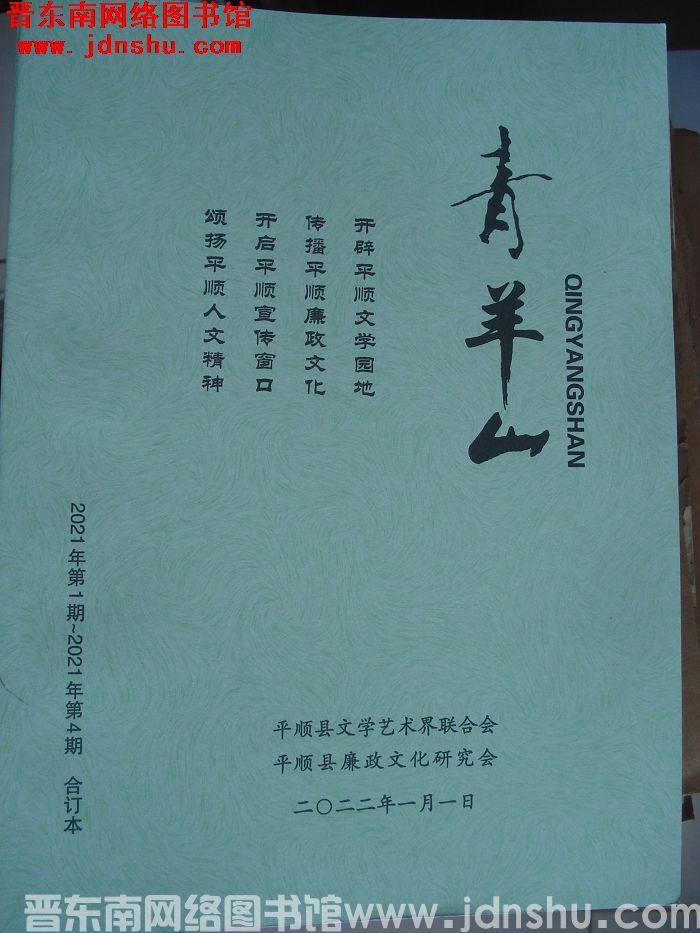 晋东南网络图书馆
www.jdnshu.com
青羊山
QINGYANGSHAN
开辟平顺文学园地
传播平顺廉政文化
开启平顺宣传窗口
颂扬平顺人文精神
2021年第1期~2021年第4期 合订本
平顺县文学艺术界联合会
平顺县廉政文化研究会
二〇二二年一月一日
晋东南网络图书馆www.jdnshu.com